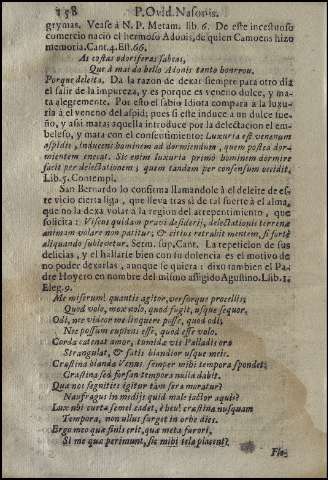 158 P. Ovid. Nasonis.
grymas. Vease à N. P. Metam. lib. 6. De este incestuoso
comercio naciò el hermoso Adonis, de quien Camoens hizo
memoria. Cant. 4. Est. 66.
As costas odoriferas sabeas,
Que à mai do bello Adonis tanto honrou.
Porque deleita. Da la razon de dexar siempre para otro dia
el salir de la impureza, y es porque es veneno dulce, y ma-
ta alegremente. Por esto el sabio Idiota compara à la luxu-
ria al veneno del aspid; pues si este induce a un dulce sue-
ño, y assi mata; aquella introduce por la delectacion el em-
beleso, y mata con el consentimiento: Luxuria est venenum
aspidis, inducens hominem ad dormiendum, quem postea dor-
mientem enecat. Sic enim luxuria primò hominem dormire
facit per delectationem; quem tandem per consensum occidit,
Lib. 5. Contempl.
San Bernardo lo confirma llamandole à el deleite de es-
te vicio cierta liga, que lleva tras si de tal suerte à el alma,
que no la dexa volar à la region del arrepentimiento, que
solicita: Viscus quidam pravi desiderij, delectationis terrenæ
animam volare non patitur; & citius retrahit mentem, si fortè
aliquando sublevetur. Serm. sup. Cant. La repeticion de sus
delicias, y el hallarse bien con su dolencia es el motivo de
no poder dexarlas, aunque se quiera: dixo tambien el Pa-
dre Hoyero en nombre del mismo afligido Agustino. Lib. 1.
Eleg. 9.
Me miserum! quantis agitor, versorque procellis;
Quod volo, mox nolo, quod fugit, usque sequor.
Odi, me videor me linquere posse, quod odi,
Nec possum cupiens esse, quod esse volo.
Corda catenat amor, tumidæ vis Palladis ora
Strangulat, & fatis blandior usque meis.
Crastina blanda Venus semper mihi tempora spondet;
Crastina sed forsan tempora nulla dabit.
Quæ nos segnities igitur tàm sera moratur?
Naufragus in medijs quid malè iactor aquis?
Lux ubi curta semel cadet, è heu! crastina nusquam
Tempora, non ullus surget in orbe dies.
Ergo meo quæ finis erit, quæ meta furori,
Si me quæ perimunt, sic mihi tela placent?
Fle-